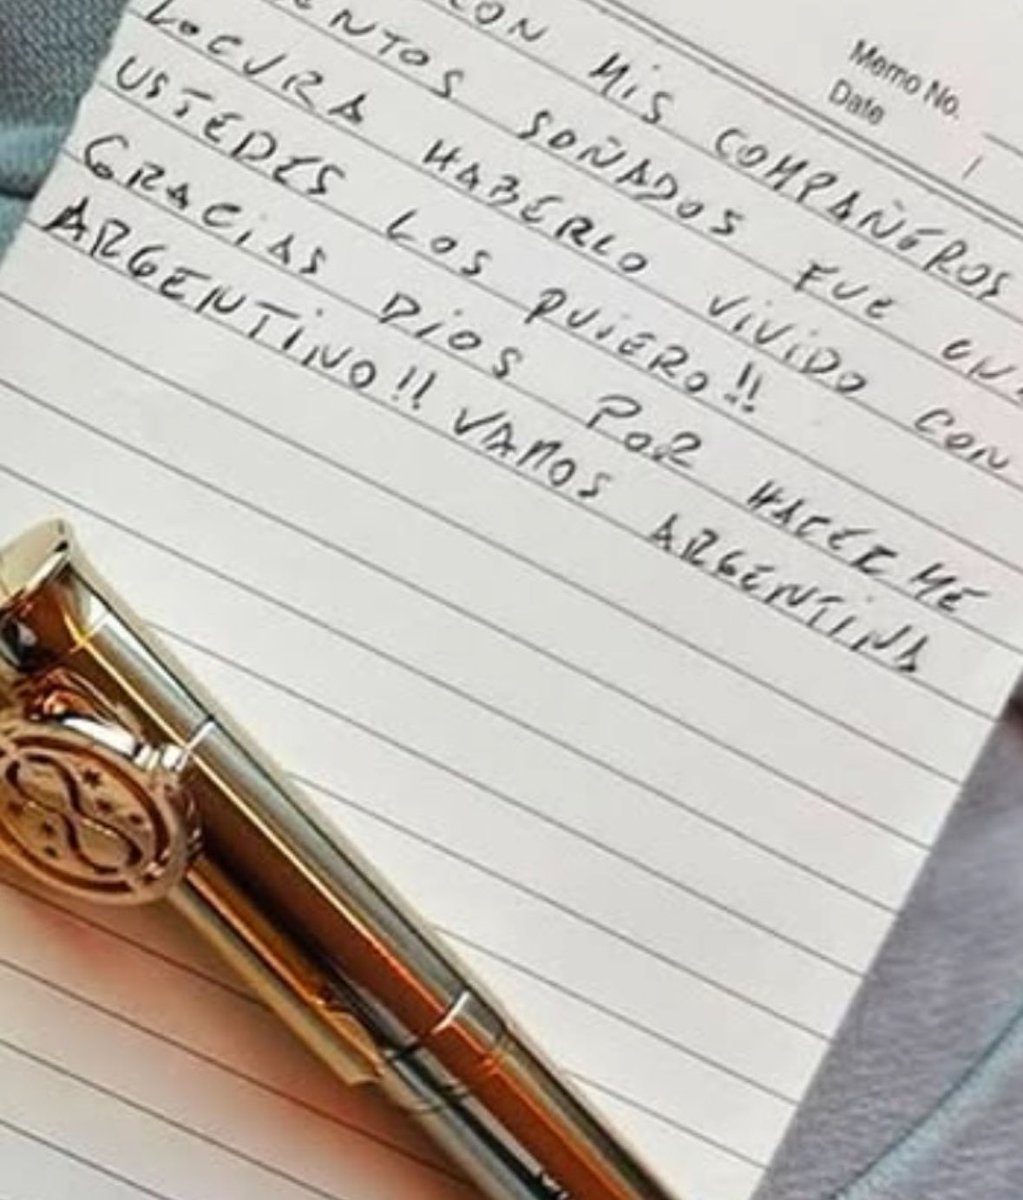 Memo No.
Date
CON MIS COMPAÑEROS
ENTOS SOÑADOS FUE UNA
LOCURA HABERLO VIVIDO CON
USTEDES LOS QUIERO!!
GRACIAS DIOS POR HACERME
ARGENTINO!! VAMOS ARGENTINA